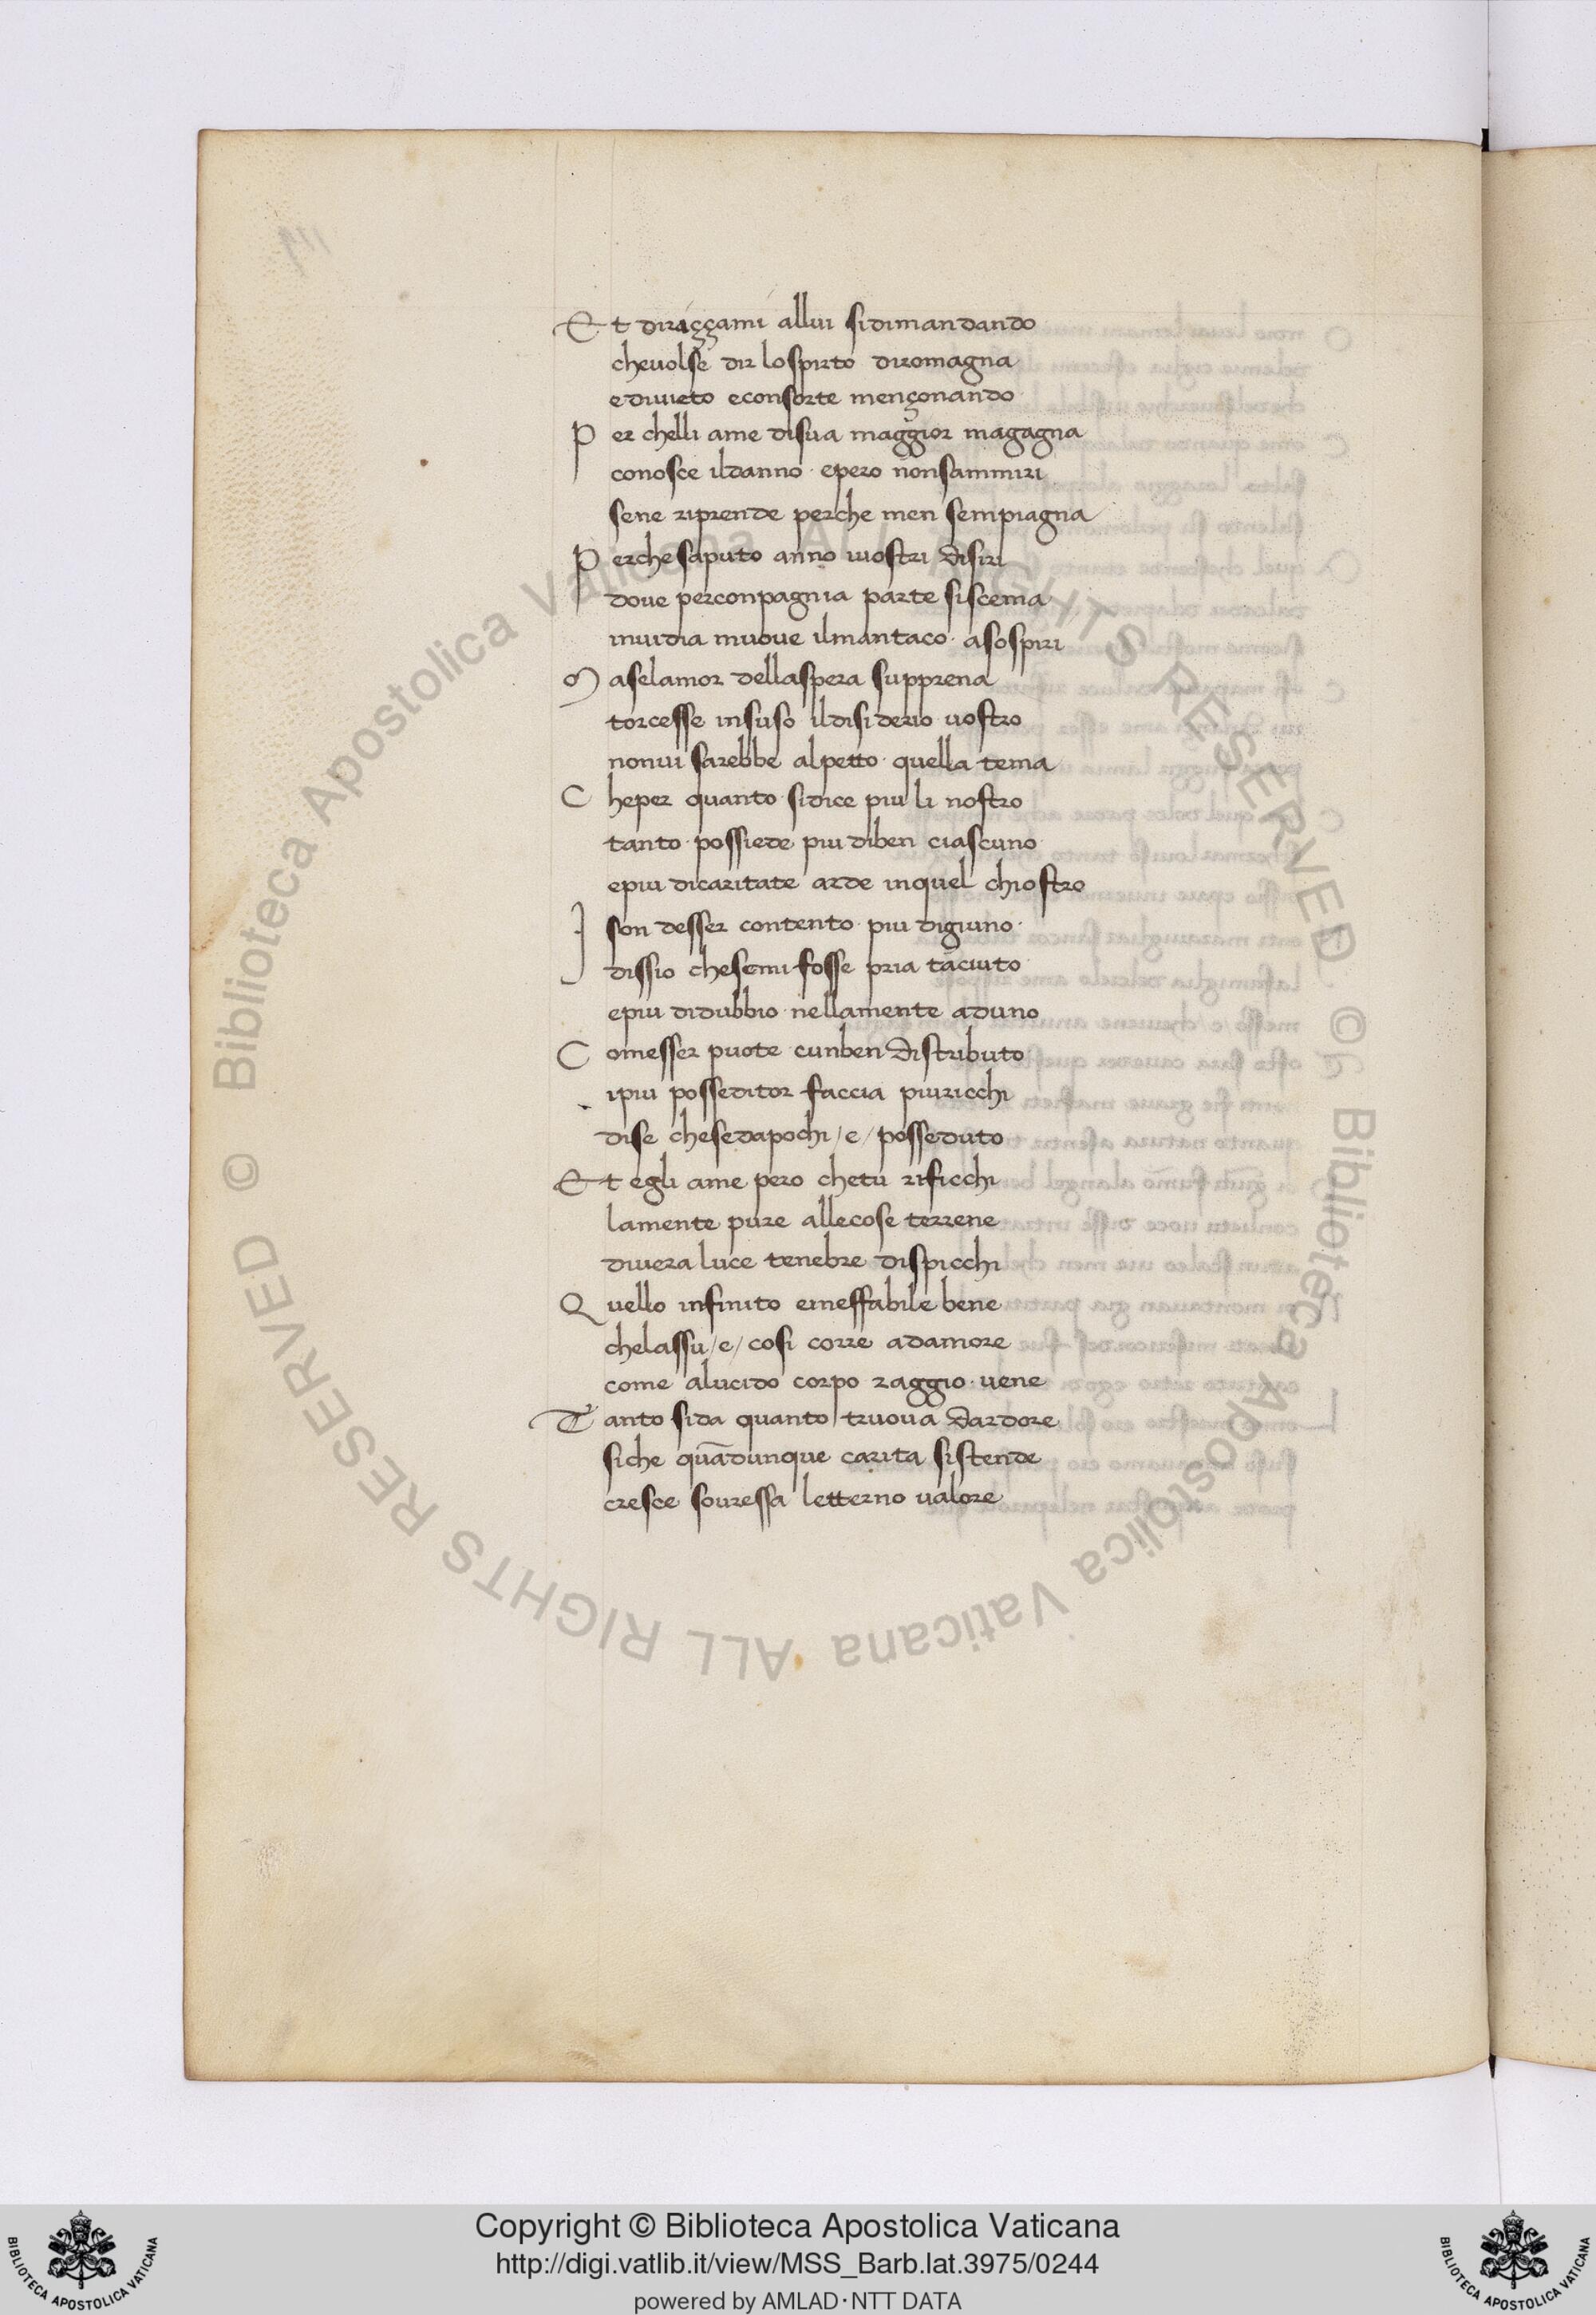 Et diriççami allui sidimandando
cheuolse dir lospirto diromagna
ediuieto econsorte mençonando
Per chelli ame disua maggior magagna
conosce ildanno · epero nonsammiri
sene riprende perche men sempiagna
Perchesaputo anno iuostri disiri
doue perconpagnia parte siscema
inuidia muoue ilmantaco · asospiri
Maselamor dellaspera supprena
torcesse insuso ildisiderio uostro
nonui sarebbe alpetto · quella tema
Cheper quanto · sidice piu li nostro
tanto · possiede piu diben ciascuno
epiu dicaritate arde inquel chiostro
I son desser contento · piu digiuno ·
dissio chesemi fosse pria taciuto
epiu didubbio · nellamente aduno
Comesser puote · cunben distributo
ipiu posseditor faccia piuricchi
dise chesedapochi /e/ posseduto
Et egli ame pero chetu rificchi
lamente pure allecose terrene
diuera luce tenebre dispicchi
Quello infinito eineffabile bene
chelassu /e/ cosi corre adamore
come alucido corpo raggio · uene
Tanto sida quanto truoua dardore
siche quādunque carita sistende
cresce souressa letterno ualore
© Biblioteca Apostolica Vaticana ALL RIGHTS RESERVED © Biblioteca Apostolica Vaticana ALL RIGHTS RESERVED
Copyright © Biblioteca Apostolica Vaticana
http://digi.vatlib.it/view/MSS_Barb.lat.3975/0244
powered by AMLAD·NTT DATA
BIBLIOTECA APOSTOLICA VATICANA
BIBLIOTECA APOSTOLICA VATICANA